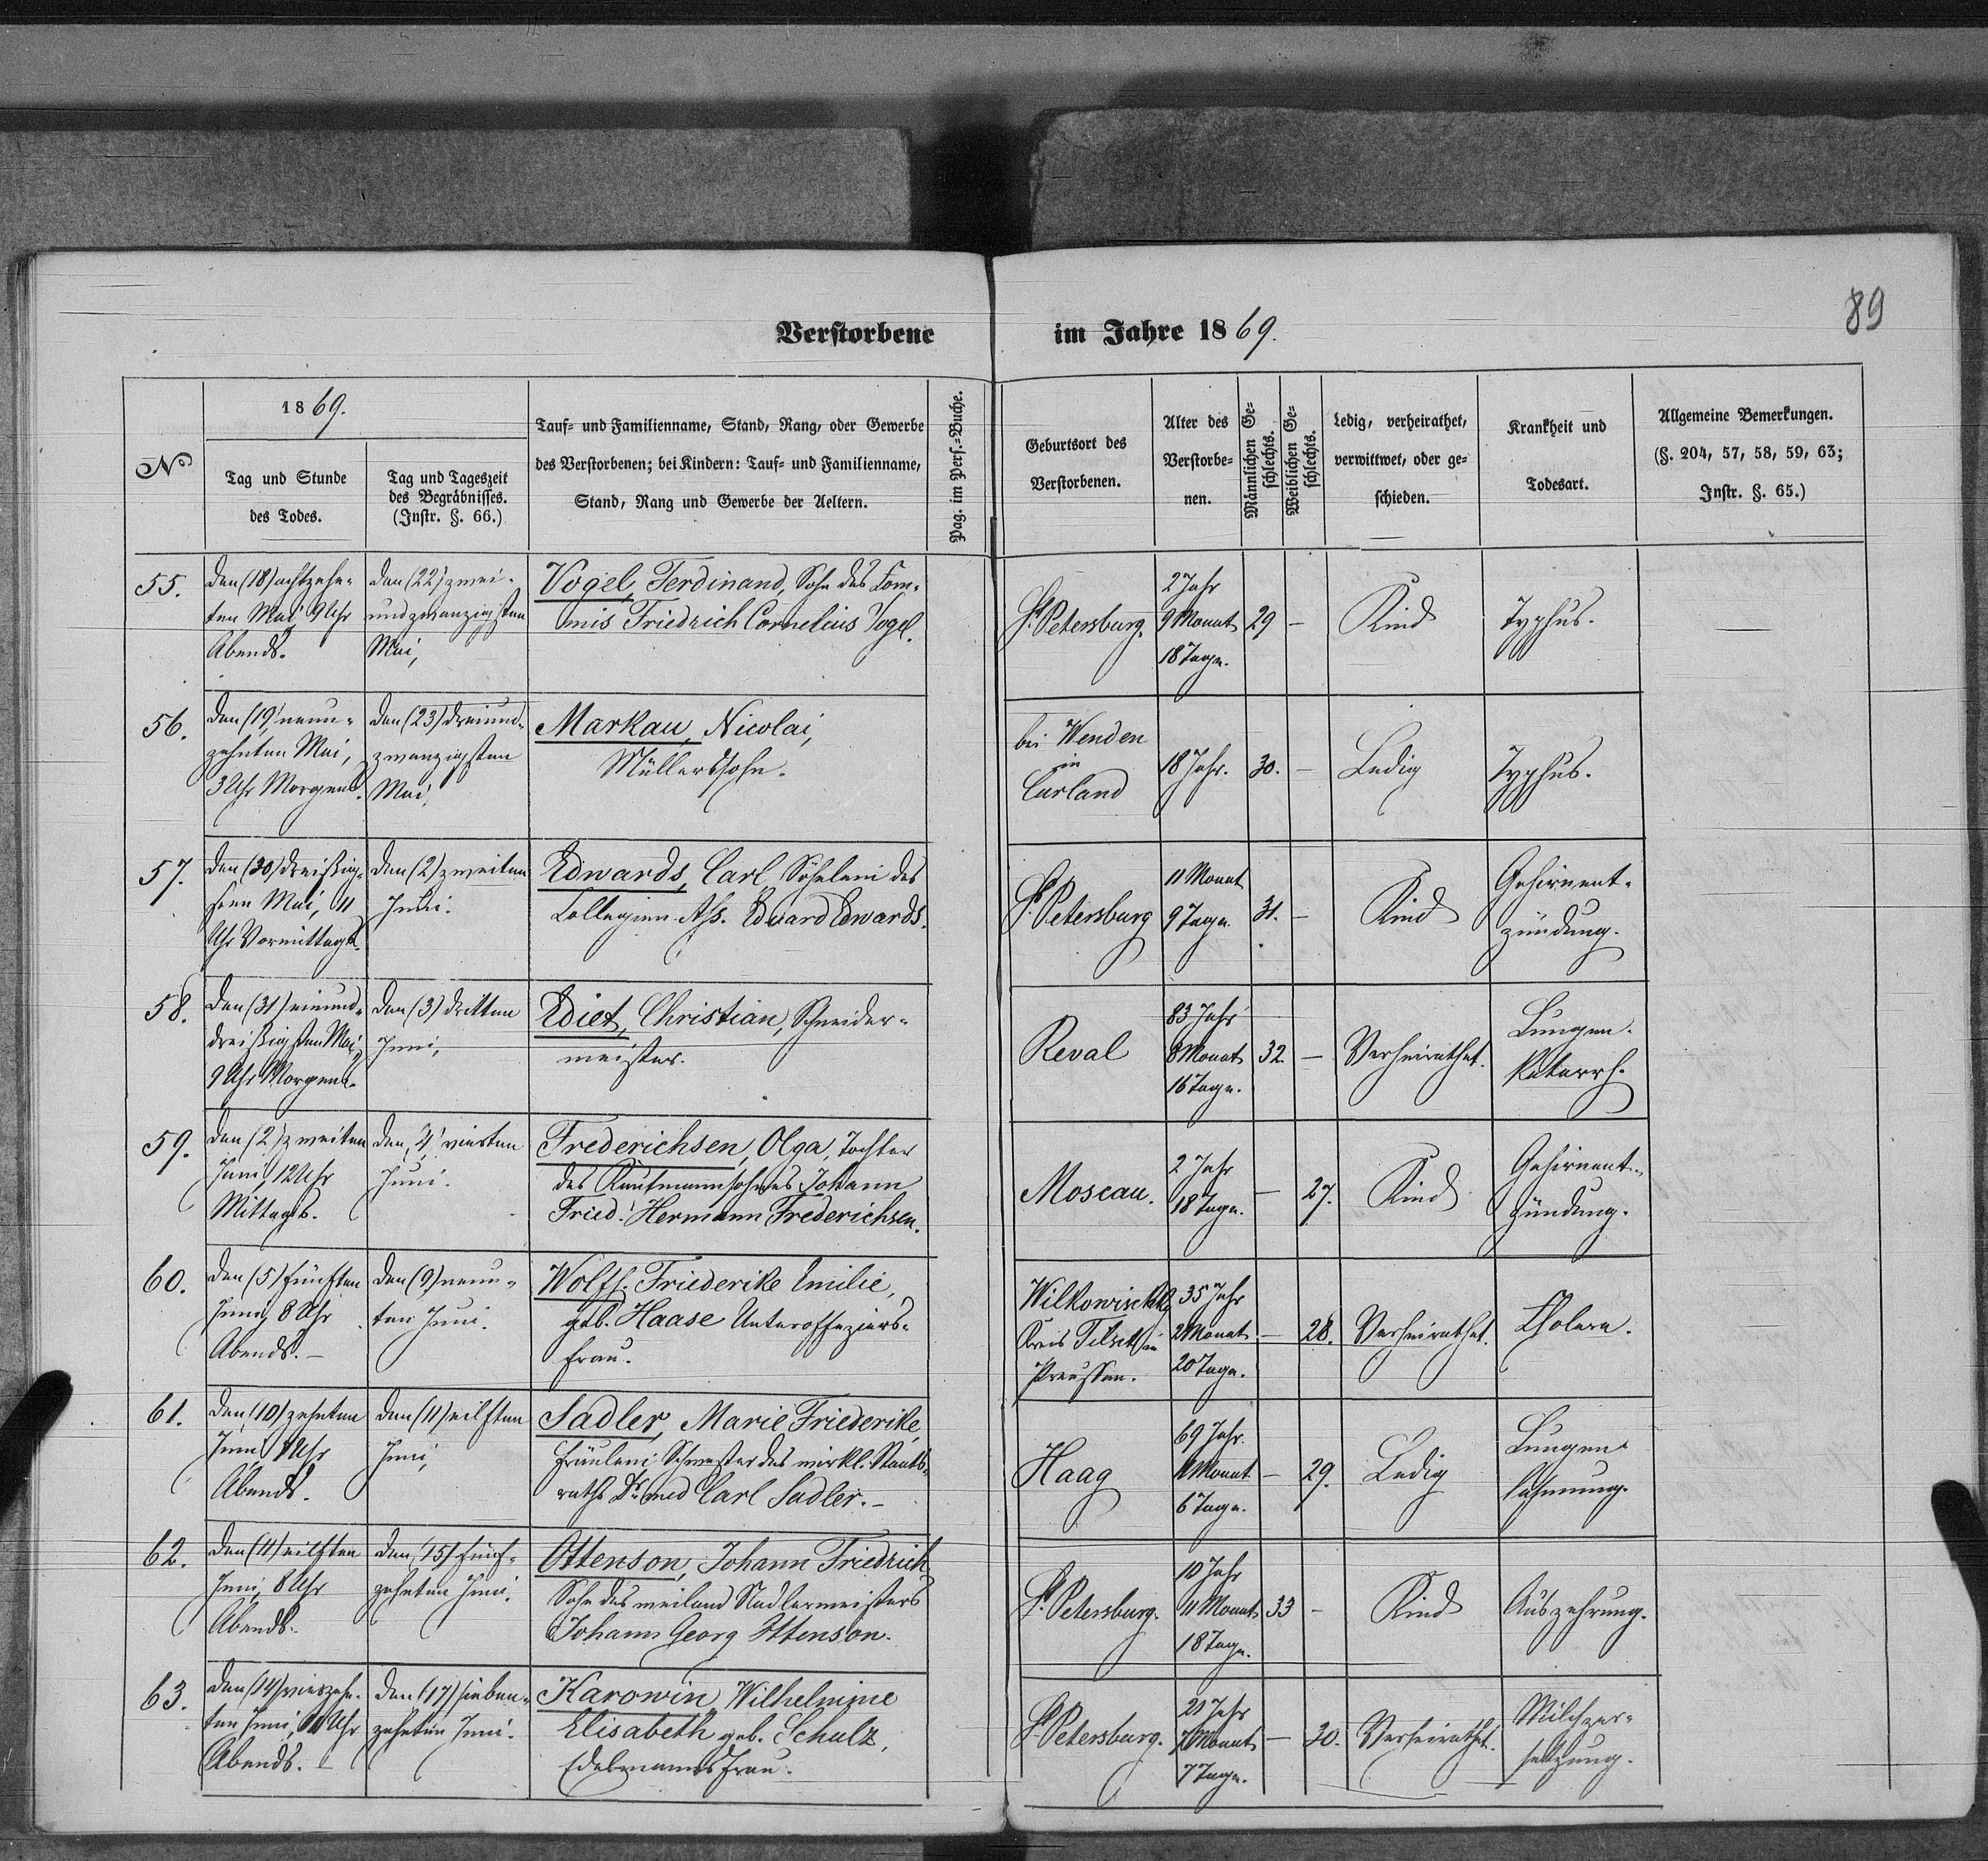 89
Verstorbene im Jahre 1869.
№
1869.
Tag und Stunde
des Todes.
Tag und Tageszeit
des Begräbnisses.
(Instr. §. 66.)
Tauf- und Familienname, Stand, Rang, oder Gewerbe
des Verstorbenen; bei Kindern: Tauf- und Familienname,
Stand, Rang und Gewerbe der Aeltern.
Pag. im Pers.-Buche.
Geburtsort des
Verstorbenen.
Alter des
Verstorbe-
nen.
Männlichen Ge-
schlechts.
Weiblichen Ge-
schlechts.
Ledig, verheirathet,
verwittwet, oder ge-
schieden.
Krankheit und
Todesart.
Allgemeine Bemerkungen.
(§. 204, 57, 58, 59, 63;
Instr. §. 65.)
55.
den (18) achtzehn-
ten Mai, 9 Uhr
Abends.
den (22) zwei-
undzwanzigsten
Mai,
Vogel, Ferdinand, Sohn des Com-
mis Friedrich Cornelius Vogel.
St. Petersburg.
2 Jahr
9 Monat
18 Tage.
29
—
Kind
Typhus.
—
56.
den (19) neun-
zehnten Mai,
3 Uhr Morgens.
den (23) dreiund-
zwanzigsten
Mai,
Markau, Nicolai,
Müllerssohn.
bei Wenden
in
Curland
18 Jahr.
30.
—
Ledig
Typhus.
57.
den (30) dreißig-
sten Mai, 11
Uhr Vormittags.
den (2) zweiten
Juni.
Edwards, Carl, Söhnlein des
Collegien-Ass. Eduard Edwards.
St. Petersburg
11 Monat
9 Tage.
31.
—
Kind
Gehirnent-
zündung.
58.
den (31) einund-
dreißigsten Mai,
9 Uhr Morgens.
den (3) dritten
Juni,
Ediet, Christian, Schneider-
meister.
Reval
83 Jahr
8 Monat
16 Tage.
32
—
Verheirathet.
Lungen-
Katarrh.
59.
den (2) zweiten
Juni, 12 Uhr
Mittags.
den (4) vierten
Juni.
Frederichsen, Olga, Tochter
des Kaufmannsohnes Johann
Fried. Hermann Frederichsen.
Moscau.
2 Jahr
18 Tage.
—
27.
Kind
Gehirnent-
zündung.
60.
den (5) fünften
Juni, 8 Uhr
Abends. —
den (9) neun-
ten Juni.
Wolff, Friederike Emilie,
geb. Haase Unteroffiziers-
frau.
Kreis Tilsit in
Preussen.
35 Jahr
2 Monat
20 Tage.
—
28.
Verheirathet.
Cholera.
61.
den (10) zehnten
Juni, Uhr
Abends.
den (11) eilften
Juni,
Sadler, Marie Friederike,
Fräulein Schwester des wirkl. Staats-
raths Dr. med Carl Sadler. —
Haag
69 Jahr.
Monat
6 Tage.
—
29.
Ledig
Lungen-
lähmung.
62.
den (11) eilften
Juni, 8 Uhr
Abends.
den (15) fünf-
zehnten Juni.
Ottenson, Johann Friedrich
Sohn des weiland Nadlermeisters
Johann Georg Ottenson.
St. Petersburg.
10 Jahr
11 Monat
18 Tage.
33
—
Kind
Auszehrung.
63.
den (14) vierzehn-
ten Juni, Uhr
Abends. —
den (17) sieben-
zehnten Juni.
Karowin, Wilhelmine
Elisabeth geb. Schulz,
Edelmannsfrau.
St. Petersburg.
21 Jahr
7 Monat
7 Tage.
—
30.
Verheirathet.
Milchver-
setzung.